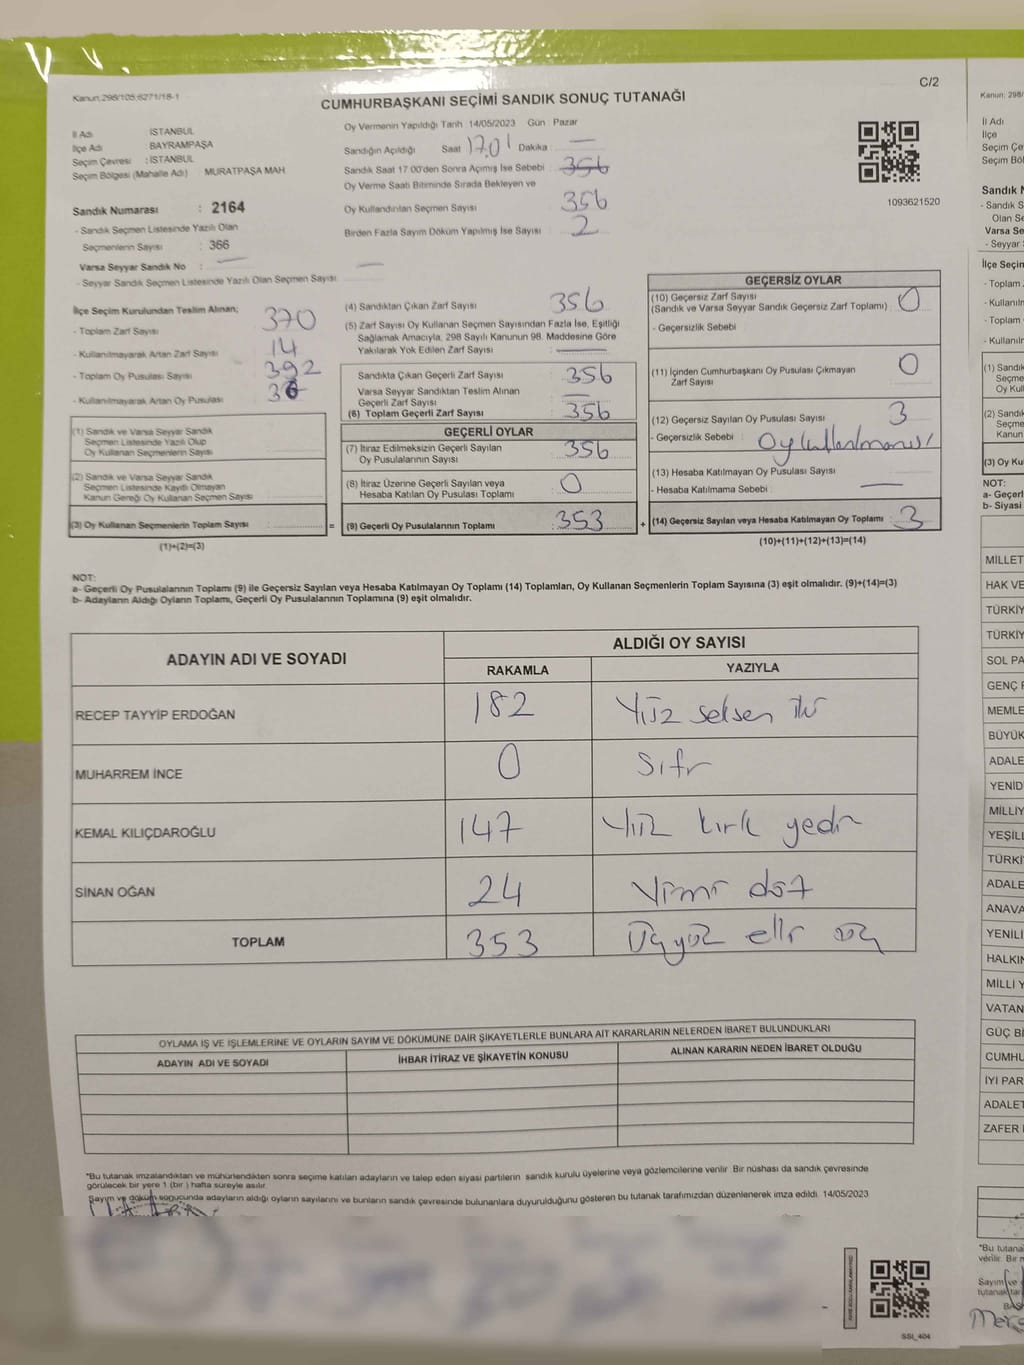 C/2
Kanun: 298/105,6271/18-1
CUMHURBAŞKANI SEÇİMİ SANDIK SONUÇ TUTANAĞI
İl Adı : İSTANBUL
İlçe Adı : BAYRAMPAŞA
Seçim Çevresi : İSTANBUL
Seçim Bölgesi (Mahalle Adı) : MURATPAŞA MAH.
Oy Vermenin Yapıldığı Tarih :14/05/2023 Gün : Pazar
Sandığın Açıldığı Saat : 17.01 Dakika : —
Sandık Saat 17:00'den Sonra Açılmış İse Sebebi : 356
Oy Verme Saati Bitiminde Sırada Bekleyen ve
Oy Kullandırılan Seçmen Sayısı : 356
Birden Fazla Sayım Döküm Yapılmış İse Sayısı : 2
1093621520
Sandık Numarası : 2164
- Sandık Seçmen Listesinde Yazılı Olan
Seçmenlerin Sayısı : 366
Varsa Seyyar Sandık No : —
- Seyyar Sandık Seçmen Listesinde Yazılı Olan Seçmen Sayısı : —
İlçe Seçim Kurulundan Teslim Alınan;
- Toplam Zarf Sayısı : 370
- Kullanılmayarak Artan Zarf Sayısı : 14
- Toplam Oy Pusulası Sayısı : 392
- Kullanılmayarak Artan Oy Pusulası : 36
(1) Sandık ve Varsa Seyyar Sandık
Seçmen Listesinde Yazılı Olup
Oy Kullanan Seçmenlerin Sayısı :
(2) Sandık ve Varsa Seyyar Sandık
Seçmen Listesinde Kayıtlı Olmayan
Kanun Gereği Oy Kullanan Seçmen Sayısı :
(3) Oy Kullanan Seçmenlerin Toplam Sayısı : =
(1)+(2)=(3)
(4) Sandıktan Çıkan Zarf Sayısı : 356
(5) Zarf Sayısı Oy Kullanan Seçmen Sayısından Fazla İse, Eşitliği
Sağlamak Amacıyla, 298 Sayılı Kanunun 98. Maddesine Göre
Yakılarak Yok Edilen Zarf Sayısı : —
Sandıkta Çıkan Geçerli Zarf Sayısı : 356
Varsa Seyyar Sandıktan Teslim Alınan
Geçerli Zarf Sayısı : —
(6) Toplam Geçerli Zarf Sayısı : 356
GEÇERLİ OYLAR
(7) İtiraz Edilmeksizin Geçerli Sayılan
Oy Pusulalarının Sayısı : 356
(8) İtiraz Üzerine Geçerli Sayılan veya
Hesaba Katılan Oy Pusulası Toplamı : 0
(9) Geçerli Oy Pusulalarının Toplamı : 353 +
GEÇERSİZ OYLAR
(10) Geçersiz Zarf Sayısı
(Sandık ve Varsa Seyyar Sandık Geçersiz Zarf Toplamı) : 0
- Geçersizlik Sebebi :
(11) İçinden Cumhurbaşkanı Oy Pusulası Çıkmayan
Zarf Sayısı : 0
(12) Geçersiz Sayılan Oy Pusulası Sayısı : 3
- Geçersizlik Sebebi : Oy kullanılmamış
(13) Hesaba Katılmayan Oy Pusulası Sayısı :
- Hesaba Katılmama Sebebi : —
(14) Geçersiz Sayılan veya Hesaba Katılmayan Oy Toplamı : 3
(10)+(11)+(12)+(13)=(14)
NOT:
a- Geçerli Oy Pusulalarının Toplamı (9) ile Geçersiz Sayılan veya Hesaba Katılmayan Oy Toplamı (14) Toplamları, Oy Kullanan Seçmenlerin Toplam Sayısına (3) eşit olmalıdır. (9)+(14)=(3)
b- Adayların Aldığı Oyların Toplamı, Geçerli Oy Pusulalarının Toplamına (9) eşit olmalıdır.
ADAYIN ADI VE SOYADI ALDIĞI OY SAYISI
RAKAMLA YAZIYLA
RECEP TAYYİP ERDOĞAN 182 Yüz seksen iki
MUHARREM İNCE 0 Sıfır
KEMAL KILIÇDAROĞLU 147 Yüz kırk yedi
SİNAN OĞAN 24 Yirmi dört
TOPLAM 353 Üçyüz elli üç
OYLAMA İŞ VE İŞLEMLERİNE VE OYLARIN SAYIM VE DÖKÜMÜNE DAİR ŞİKAYETLERLE BUNLARA AİT KARARLARIN NELERDEN İBARET BULUNDUKLARI
ADAYIN ADI VE SOYADI İHBAR İTİRAZ VE ŞİKAYETİN KONUSU ALINAN KARARIN NEDEN İBARET OLDUĞU
*Bu tutanak imzalandıktan ve mühürlendikten sonra seçime katılan adayların ve talep eden siyasi partilerin sandık kurulu üyelerine veya gözlemcilerine verilir. Bir nüshası da sandık çevresinde
görülecek bir yere 1 (bir) hafta süreyle asılır.
Sayım ve döküm sonucunda adayların aldığı oyların sayılarını ve bunların sandık çevresinde bulunanlara duyurulduğunu gösteren bu tutanak tarafımızdan düzenlenerek imza edildi. 14/05/2023
SSİ_404
Kanun: 298/
İl Adı
İlçe
Seçim Çe
Seçim Böl
Sandık N
- Sandık S
Olan Se
Varsa Se
- Seyyar
İlçe Seçim
- Toplam
- Kullanılm
- Toplam
- Kullanılm
(1) Sandık
Seçme
Oy Kul
(2) Sandık
Seçme
Kanun
(3) Oy Ku
NOT:
a- Geçerl
b- Siyasi
MİLLET
HAK VE
TÜRKİY
TÜRKİY
SOL PA
GENÇ P
MEMLE
BÜYÜK
ADALE
YENİD
MİLLİY
YEŞİLL
TÜRKİ
ADALE
ANAVA
YENİLİ
HALKIN
MİLLİ Y
VATAN
GÜÇ Bİ
CUMHU
İYİ PAR
ADALET
ZAFER
*Bu tutana
verilir. Bir n
Sayım ve
tutanak tar